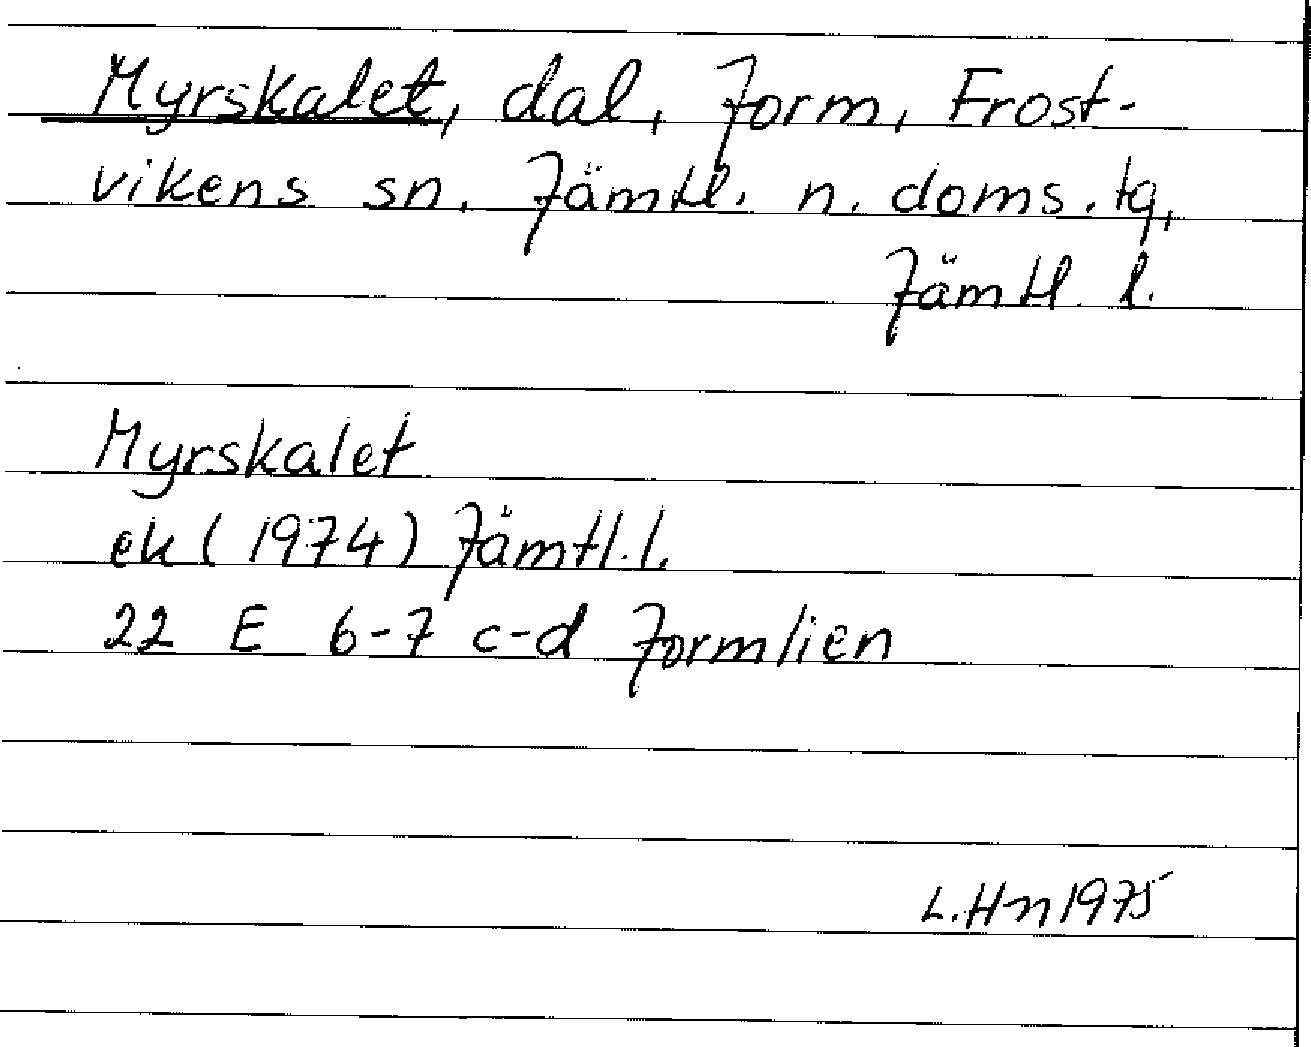 Myrskalet, dal, Jorm, Frost-
vikens sn, Jämtl. n. doms. tg,
Jämtl. l.
Myrskalet
ek (1974) Jämtl. l.
22 E 6-7 c-d Jormlien
L. Hn 1975